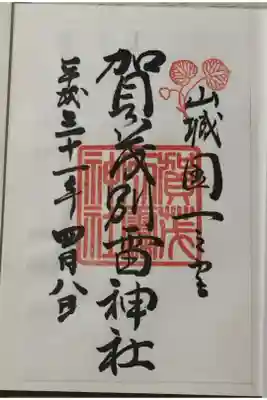 山城国一之宮
賀茂別雷神社
平成三十一年四月八日